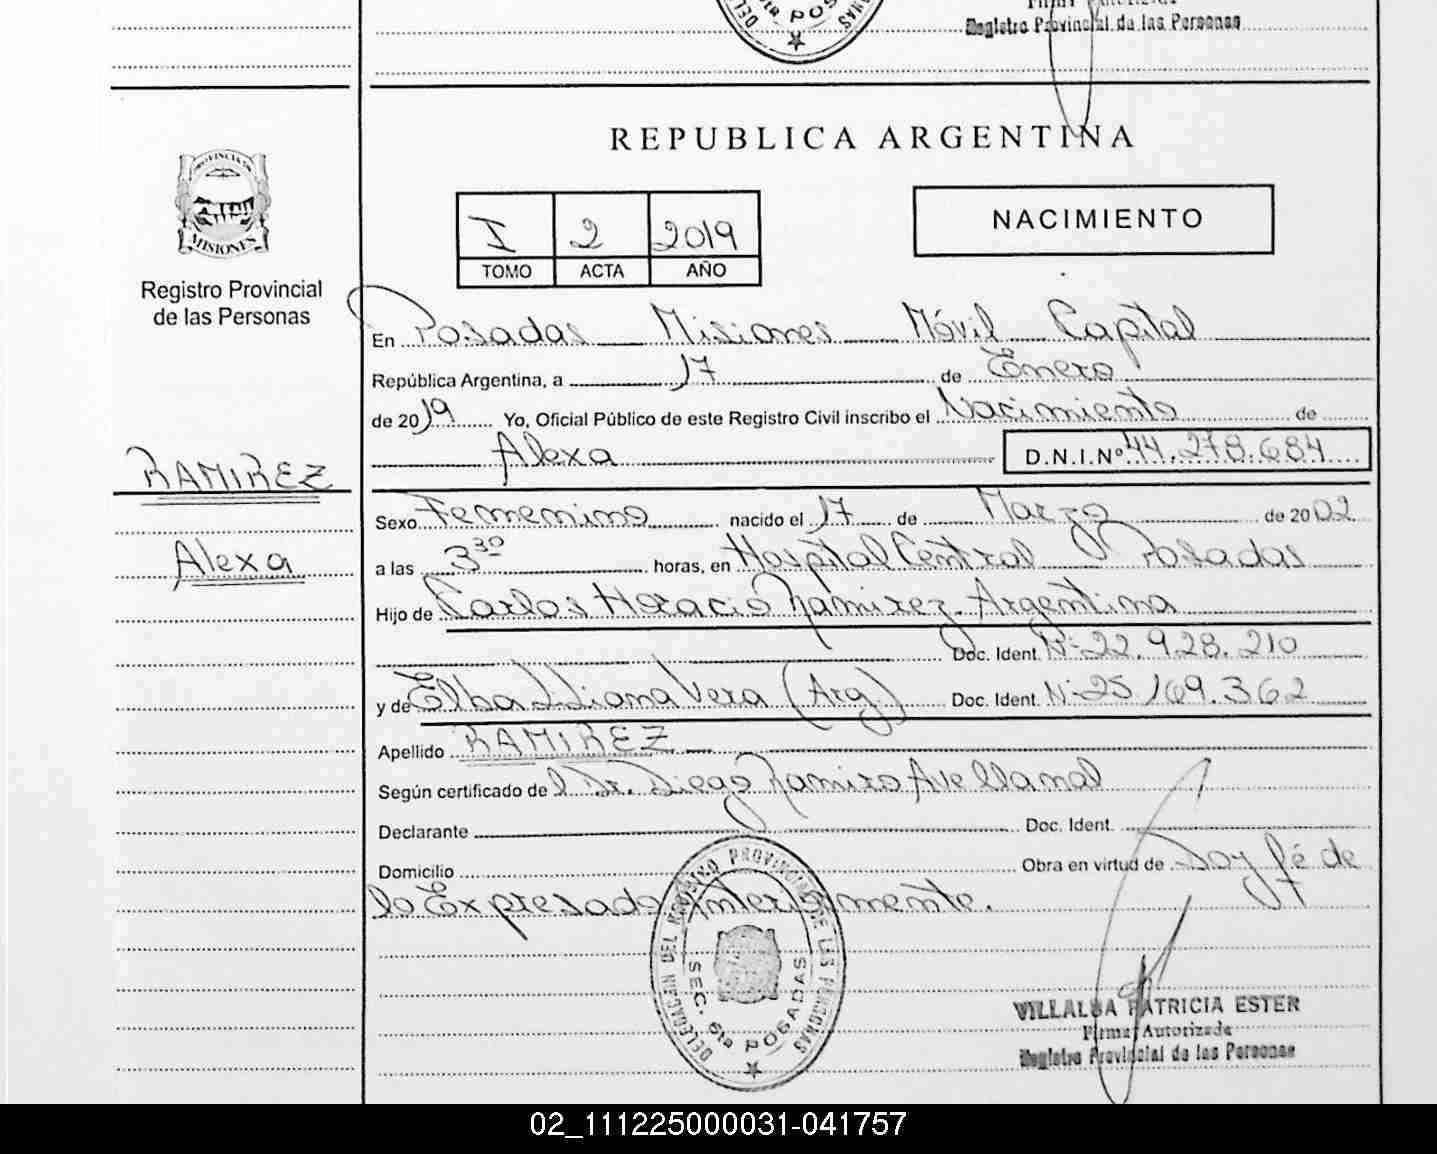 Registro Provincial de las Personas
REPUBLICA ARGENTINA
PROVINCIA DE
MISIONES
Registro Provincial
de las Personas
I 2 2019
TOMO ACTA AÑO
NACIMIENTO
En Posadas Misiones Móvil Capital
República Argentina, a 17 de Enero
de 2019 Yo, Oficial Público de este Registro Civil inscribo el Nacimiento de
Alexa D.N.I.Nº 44.278.684
RAMIREZ
Alexa
Sexo Femenino nacido el 17 de Marzo de 2002
a las 3 30 horas, en Hospital Central Posadas
Hijo de Carlos Horacio Ramirez Argentina
Doc. Ident. Nº 22.928.210
y de Elba Liliana Vera (Arg.) Doc. Ident. Nº 25.169.362
Apellido RAMIREZ
Según certificado del Dr. Diego Ramiro Avellanal
Declarante Doc. Ident.
Domicilio Obra en virtud de Doy fé de
lo Expresado Anteriormente.
DELEGACION DEL REGISTRO PROVINCIAL DE LAS PERSONAS
SEC. 6ta POSADAS
VILLALBA PATRICIA ESTER
Firma Autorizada
Registro Provincial de las Personas
02_111225000031-041757